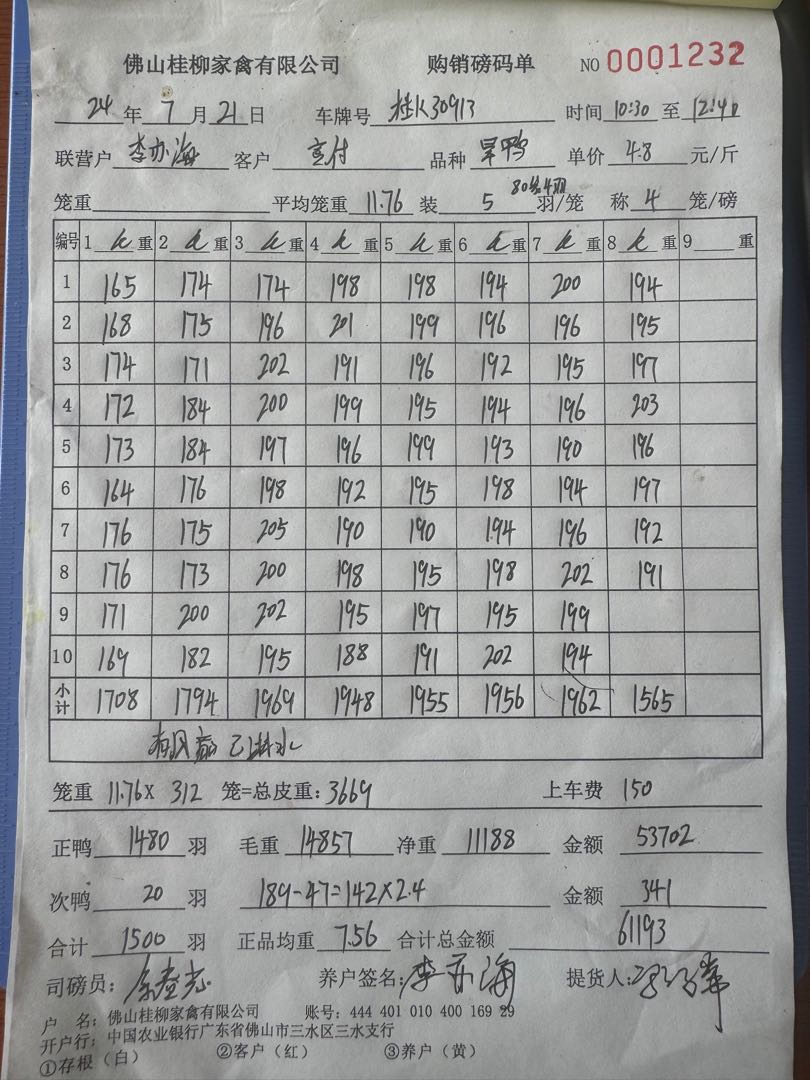 佛山桂柳家禽有限公司 购销磅码单 NO 0001232
24 年 7 月 21 日 车牌号 桂K30913 时间 10:30 至 12:40
联营户 李亦海 客户 客户 品种 旱鸭 单价 4.8 元/斤
笼重 平均笼重 11.76 装 5 80笼4羽 羽/笼 称 4 笼/磅
编号 1 重 2 重 3 重 4 重 5 重 6 重 7 重 8 重 9 重
1 165 174 174 198 198 194 200 194
2 168 175 196 201 199 196 196 195
3 174 171 202 191 196 192 195 197
4 172 184 200 199 195 194 196 203
5 173 184 197 196 199 193 190 196
6 164 176 198 192 195 198 194 197
7 176 175 205 190 190 194 196 192
8 176 173 200 198 195 198 202 191
9 171 200 202 195 197 195 199
10 169 182 195 188 191 202 194
小计 1708 1794 1969 1948 1955 1956 1962 1565
水
笼重 11.76X 312 笼=总皮重:3669 上车费 150
正鸭 1480 羽 毛重 14857 净重 11188 金额 53702
次鸭 20 羽 189-47=142X2.4 金额 341
合计 1500 羽 正品均重 7.56 合计总金额 61193
司磅员: 养户签名:李亦海 提货人:
户 名:佛山桂柳家禽有限公司 账号:444 401 010 400 169 29
开户行:中国农业银行广东省佛山市三水区三水支行
①存根(白) ②客户(红) ③养户(黄)